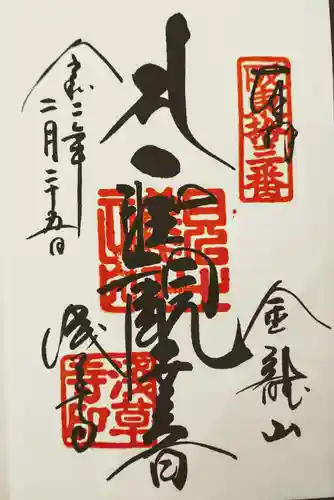 奉拝
坂東十三番
金龍山
聖観世音
浅草寺
浅草寺印
令和二年
二月二十五日